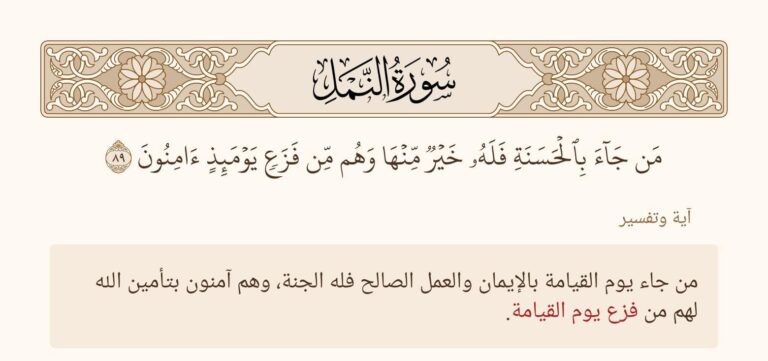 سُورَةُ النَّمْلِ
مَن جَآءَ بِٱلْحَسَنَةِ فَلَهُۥ خَيْرٌ مِّنْهَا وَهُم مِّن فَزَعٍ يَوْمَئِذٍ ءَامِنُونَ ٨٩
آية وتفسير
من جاء يوم القيامة بالإيمان والعمل الصالح فله الجنة، وهم آمنون بتأمين الله
لهم من فزع يوم القيامة.